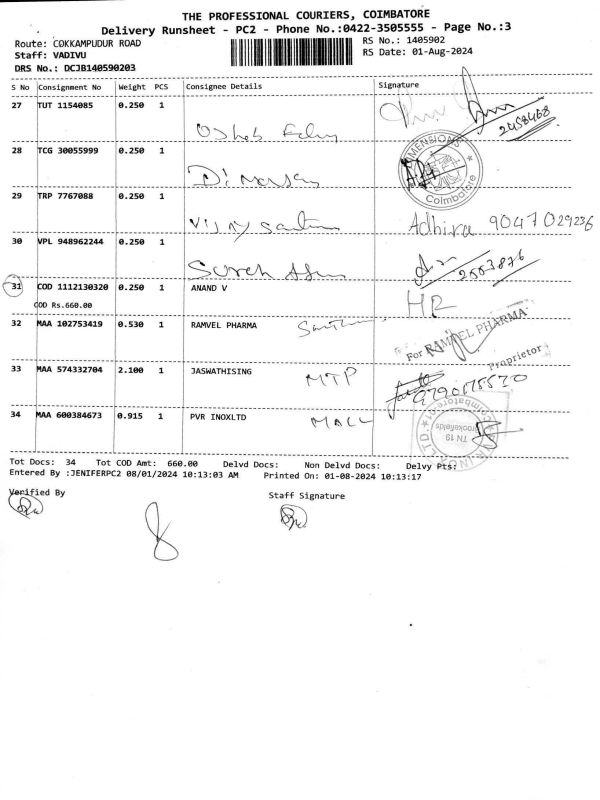 THE PROFESSIONAL COURIERS, COIMBATORE
Delivery Runsheet - PC2 - Phone No.:0422-3505555 - Page No.:3
Route: COKKAMPUDUR ROAD RS No.: 1405902
Staff: VADIVU RS Date: 01-Aug-2024
DRS No.: DCJB140590203
S No Consignment No Weight PCS Consignee Details Signature
27 TUT 1154085 0.250 1
2458468
28 TCG 30055999 0.250 1
DIMENSIONS
Coimbatore
29 TRP 7767088 0.250 1
Vijay Adhira 9047029236
30 VPL 948962244 0.250 1
Suresh 2503876
31 COD 1112130320 0.250 1 ANAND V HR
COD Rs.660.00
32 MAA 102753419 0.530 1 RAMVEL PHARMA
For RAMVEL PHARMA
Proprietor
33 MAA 574332704 2.100 1 JASWATHISING MTP
34 MAA 600384673 0.915 1 PVR INOXLTD MALL
TN 19
Brookefields
Coimbatore
Tot Docs: 34 Tot COD Amt: 660.00 Delvd Docs: Non Delvd Docs: Delvy Pts:
Entered By :JENIFERPC2 08/01/2024 10:13:03 AM Printed On: 01-08-2024 10:13:17
Verified By Staff Signature